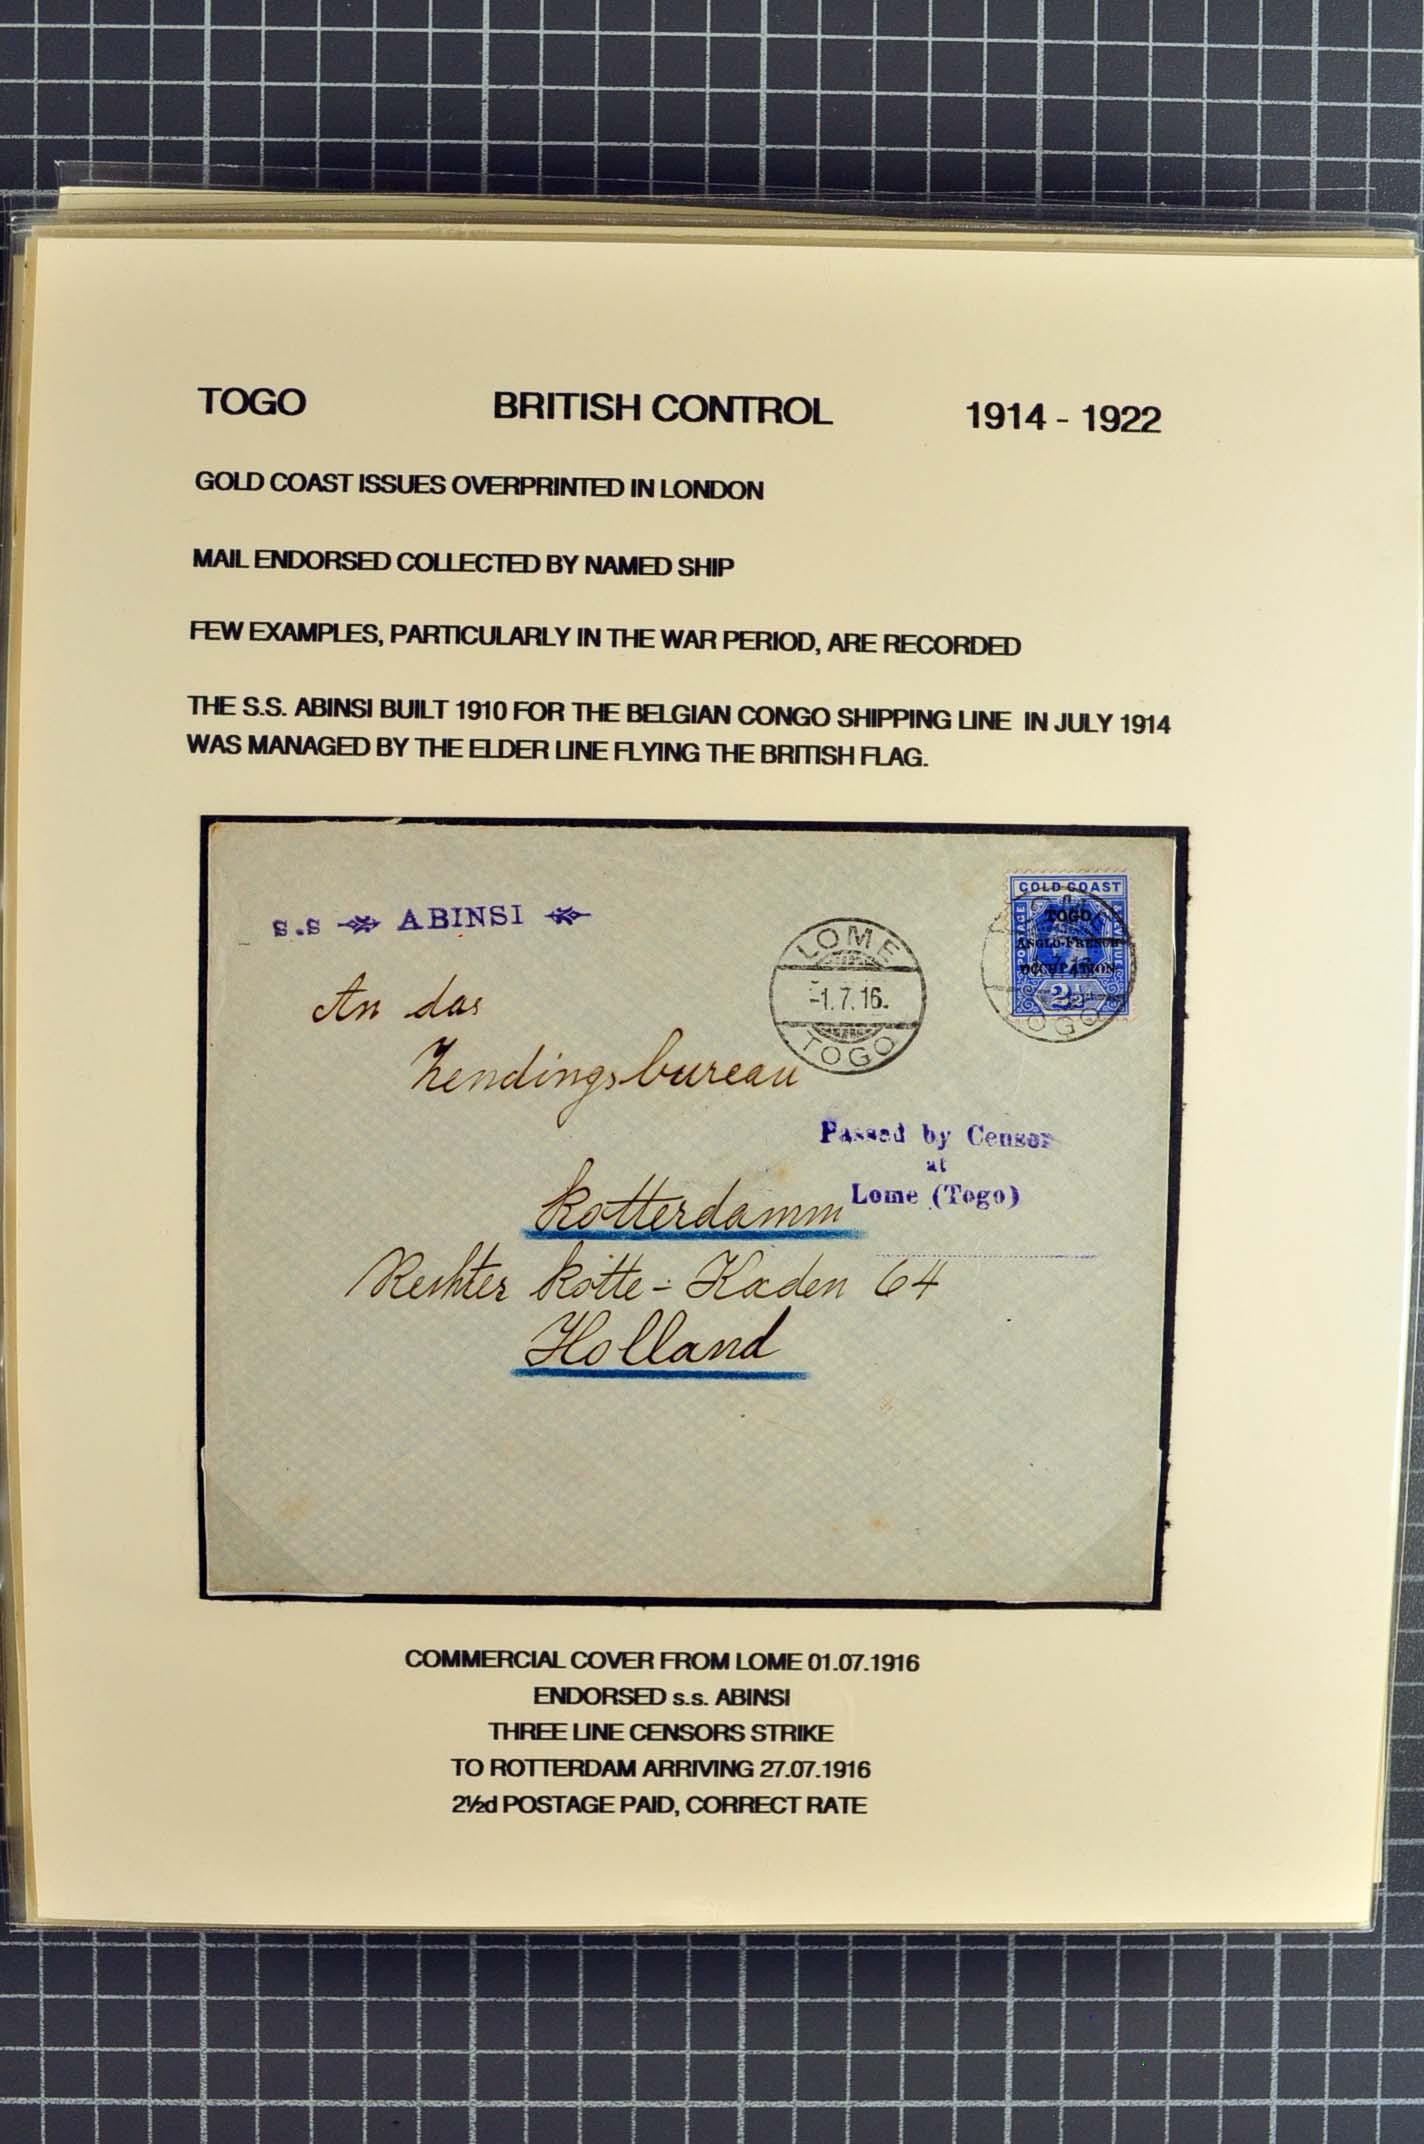 TOGO BRITISH CONTROL 1914 - 1922
GOLD COAST ISSUES OVERPRINTED IN LONDON
MAIL ENDORSED COLLECTED BY NAMED SHIP
FEW EXAMPLES, PARTICULARLY IN THE WAR PERIOD, ARE RECORDED
THE S.S. ABINSI BUILT 1910 FOR THE BELGIAN CONGO SHIPPING LINE IN JULY 1914
WAS MANAGED BY THE ELDER LINE FLYING THE BRITISH FLAG.
s.s ABINSI
GOLD COAST
POSTAGE
TOGO
ANGLO-FRENCH
OCCUPATION
2½
TOGO
LOME
-1.7.16.
TOGO
An das
Zendingsbureau
Passed by Censor
at
Lome (Togo)
Rotterdamm
Rechter Rotte-Kaden 64
Holland
COMMERCIAL COVER FROM LOME 01.07.1916
ENDORSED s.s. ABINSI
THREE LINE CENSORS STRIKE
TO ROTTERDAM ARRIVING 27.07.1916
2½d POSTAGE PAID, CORRECT RATE